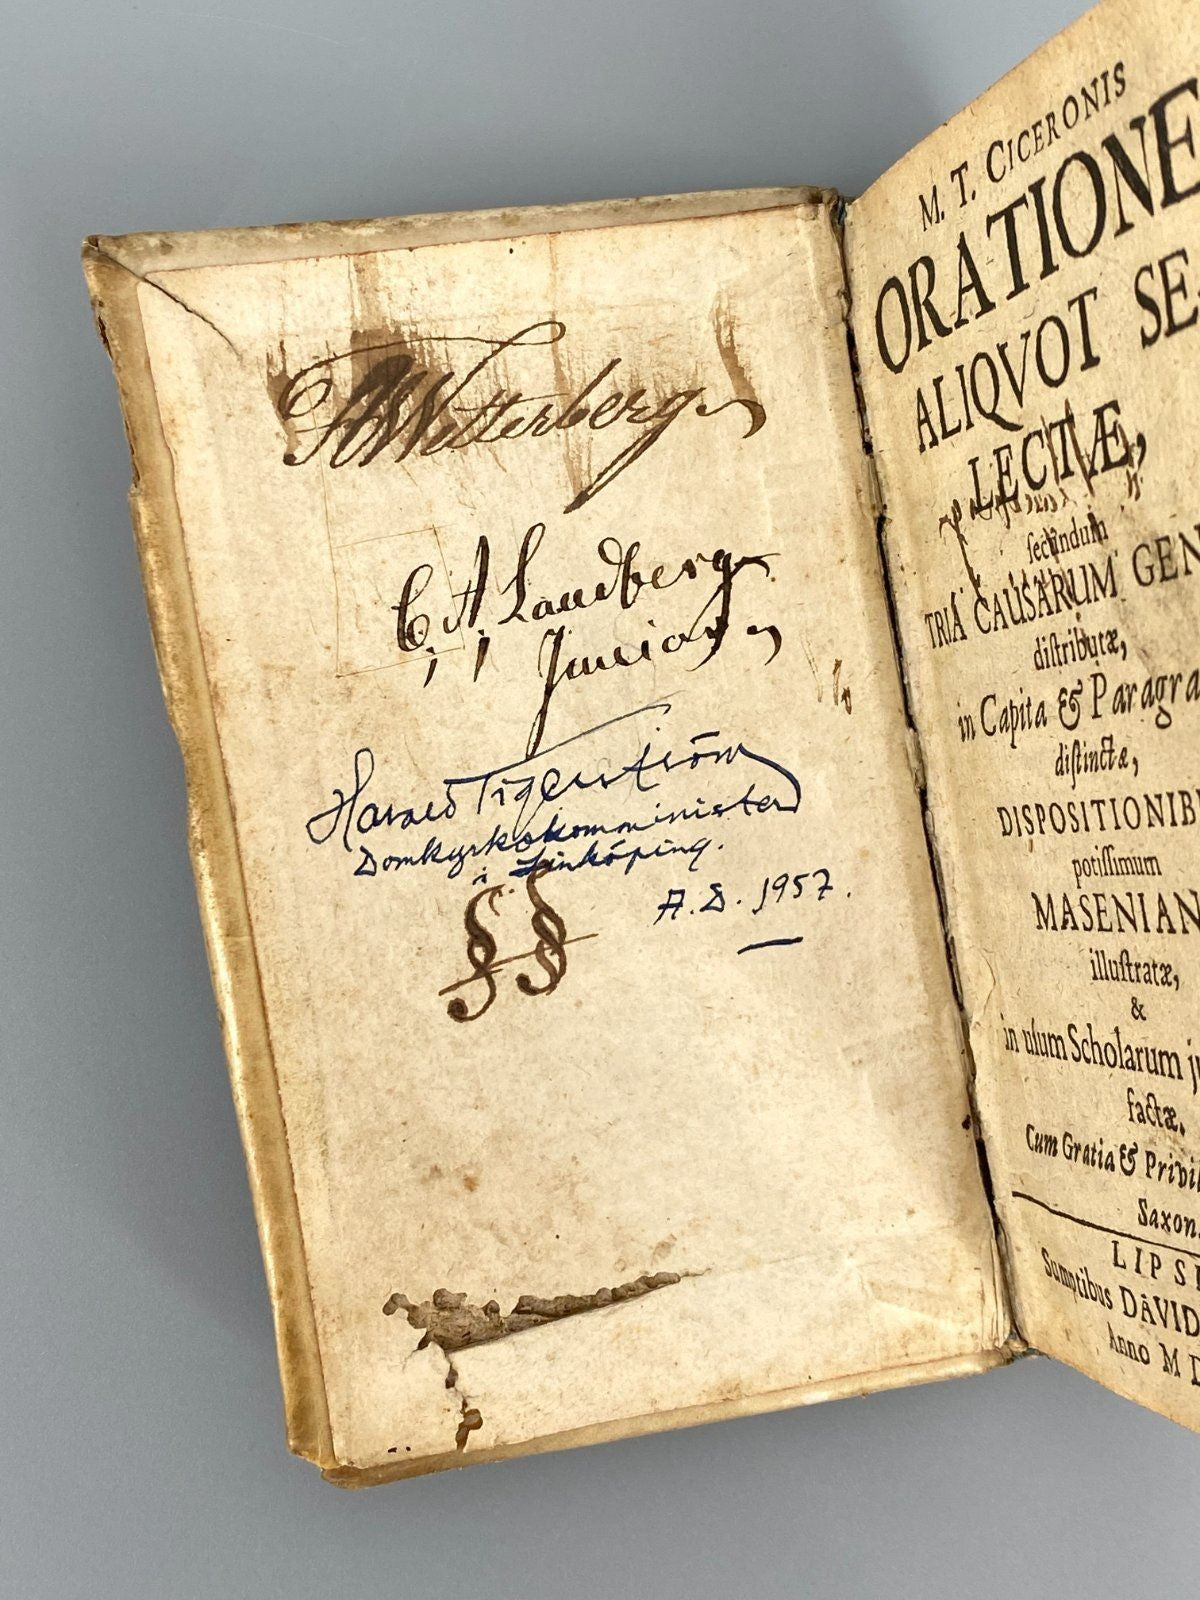 Wetterberg
C. A. Landberg
Junior
Harald Tigerström
Domkyrkokomminister
i Linköping.
A. D. 1957.
§ §
M. T. CICERONIS
ORATIONE
ALIQVOT SE-
LECTÆ,
ſecundum
TRIA CAUSARUM GEN
diſtributæ,
in Capita & Paragra
diſtinctæ,
DISPOSITIONIB
potiſſimum
MASENIAN
illuſtratæ,
&
in uſum Scholarum j
factæ.
Cum Gratia & Privil
Saxon.
LIPS
Sumptibus DAVID
Anno M D